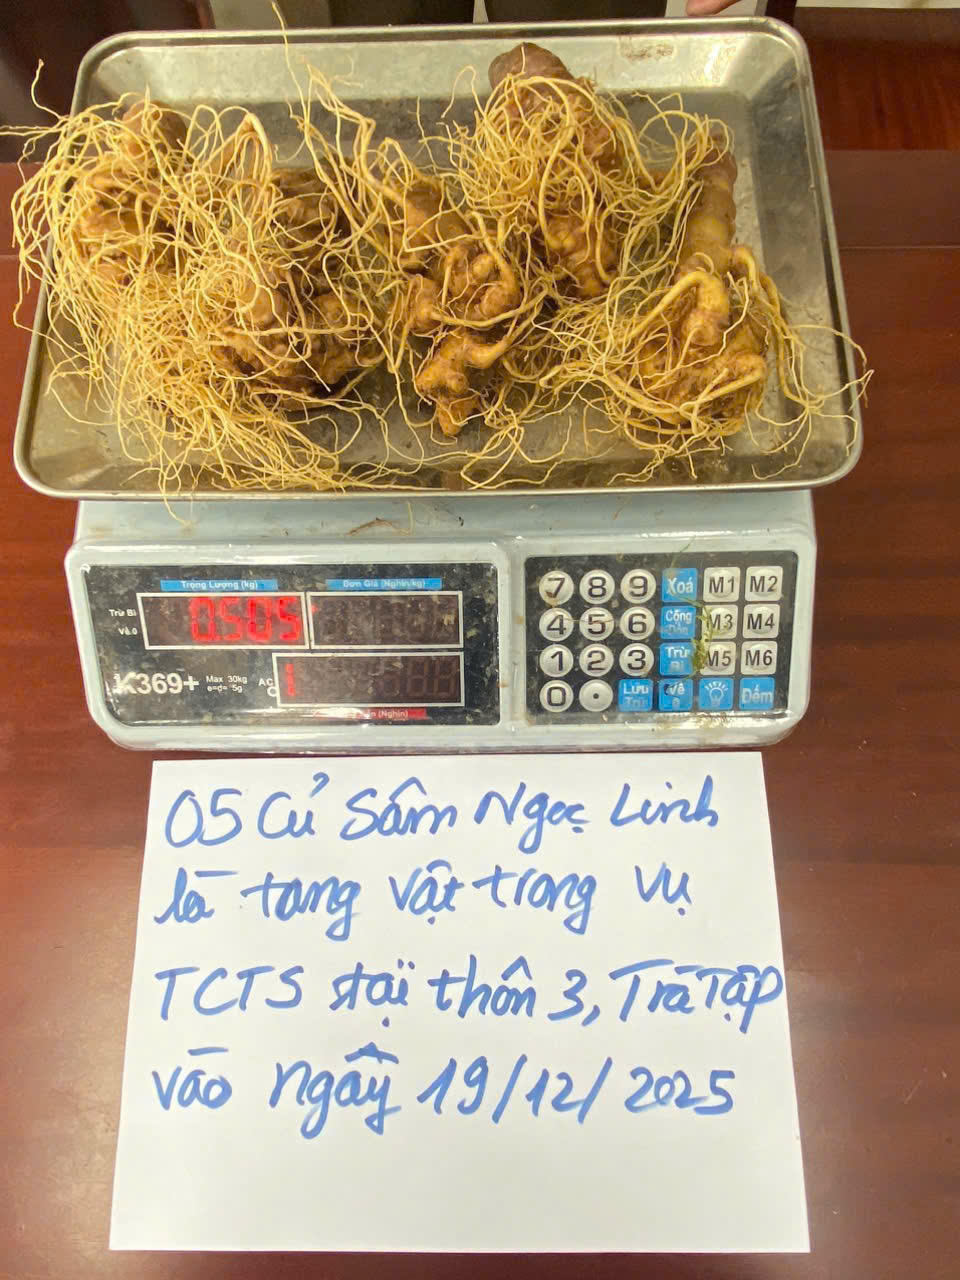 Trọng Lượng (kg)
Đơn Giá (Nghìn/kg)
Trừ Bì
Về 0
0.505
K369+
Max 30kg
e=d= 5g
AC
(Nghìn)
7 8 9 Xoá M1 M2
4 5 6 Cộng M3 M4
1 2 3 Trừ Bì M5 M6
0 . Lưu Về Đếm
05 Củ Sâm Ngọc Linh
là tang vật trong vụ
TCTS tại thôn 3, Trà Tập
vào ngày 19/12/2025